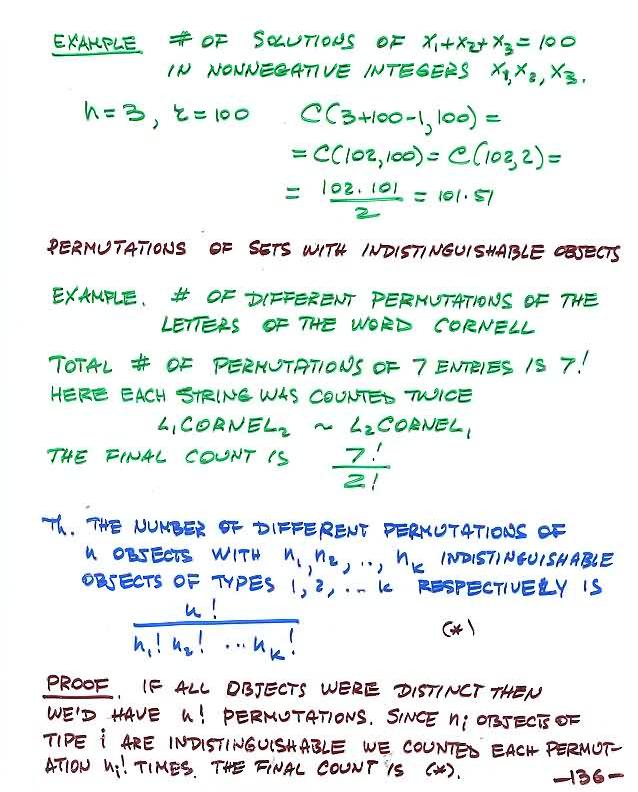 EXAMPLE # OF SOLUTIONS OF x₁+x₂+x₃=100
IN NONNEGATIVE INTEGERS x₁,x₂,x₃.
n=3, r=100 C(3+100-1,100)=
=C(102,100)=C(102,2)=
= 102·101/2 = 101·51
PERMUTATIONS OF SETS WITH INDISTINGUISHABLE OBJECTS
EXAMPLE. # OF DIFFERENT PERMUTATIONS OF THE
LETTERS OF THE WORD CORNELL
TOTAL # OF PERMUTATIONS OF 7 ENTRIES IS 7!
HERE EACH STRING WAS COUNTED TWICE
L₁CORNEL₂ ~ L₂CORNEL₁
THE FINAL COUNT IS 7!/2!
Th. THE NUMBER OF DIFFERENT PERMUTATIONS OF
n OBJECTS WITH n₁,n₂,..,nₖ INDISTINGUISHABLE
OBJECTS OF TYPES 1,2,..k RESPECTIVELY IS
n!/n₁!n₂!...nₖ! (*)
PROOF. IF ALL OBJECTS WERE DISTINCT THEN
WE'D HAVE n! PERMUTATIONS. SINCE nᵢ OBJECTS OF
TIPE i ARE INDISTINGUISHABLE WE COUNTED EACH PERMUT-
ATION nᵢ! TIMES. THE FINAL COUNT IS (*).
-136-